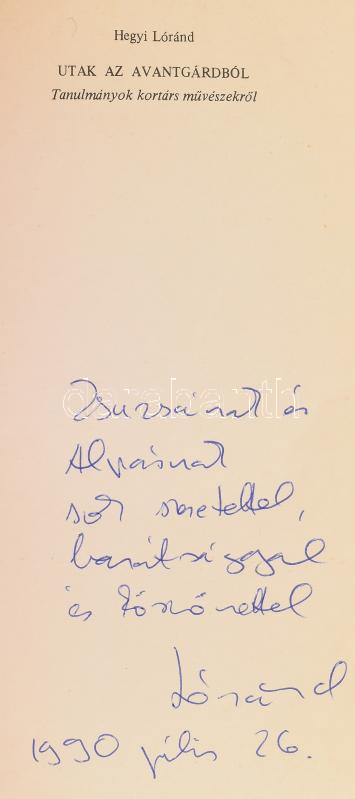 Hegyi Lóránd
UTAK AZ AVANTGÁRDBÓL
Tanulmányok kortárs művészekről
darabanth
Zsuzsának és
sok szeretettel,
barátsággal
és köszönettel
Lóránd
1990 július 26.